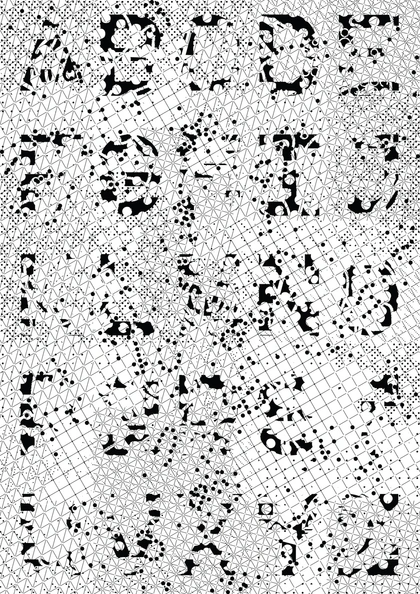 A B C D E
F G H I J
K L M N O
P Q R S T
U X Y Z